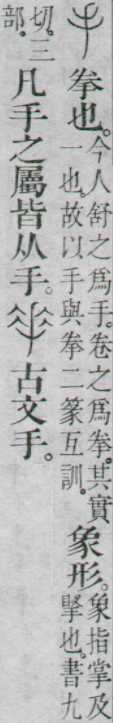 手拳也。今人舒之爲手。卷之爲拳。其實一也。故以手與拳二篆互訓。象形。象指掌及掔也。書九
切。三部。凡手之屬皆从手。𠂿古文手。